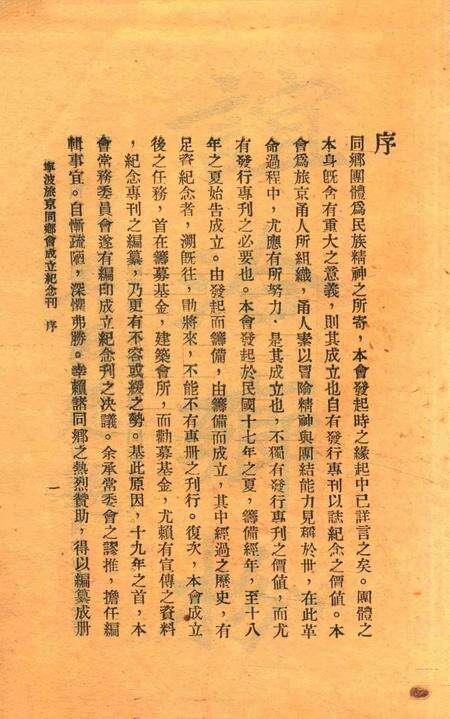 序
同鄉團體爲民族精神之所寄，本會發起時之緣起中已詳言之矣。團體之
本身旣含有重大之意義，則其成立也自有發行專刊以誌紀念之價値。本
會爲旅京甬人所組織，甬人素以冒險精神與團結能力見稱於世，在此革
命過程中，尤應有所努力．是其成立也，不獨有發行專刊之價値，而尤
有發行專刊之必要也。本會發起於民國十七年之夏，籌備經年，至十八
年之夏始告成立。由發起而籌備，由籌備而成立，其中經過之歷史，有
足資紀念者，溯旣往，勖將來，不能不有專册之刊行。復次，本會成立
後之任務，首在籌募基金，建築會所，而勸募基金，尤賴有宣傳之資料
，紀念專刊之編纂，乃更有不容或緩之勢。基此原因，十九年之首，本
會常務委員會遂有編印成立紀念刊之决議。余承常委會之謬推，擔任編
輯事宜。自慚疏陋，深懼弗勝。幸賴諸同鄉之熱烈贊助，得以編纂成册
寧波旅京同鄉會成立紀念刊　序
一